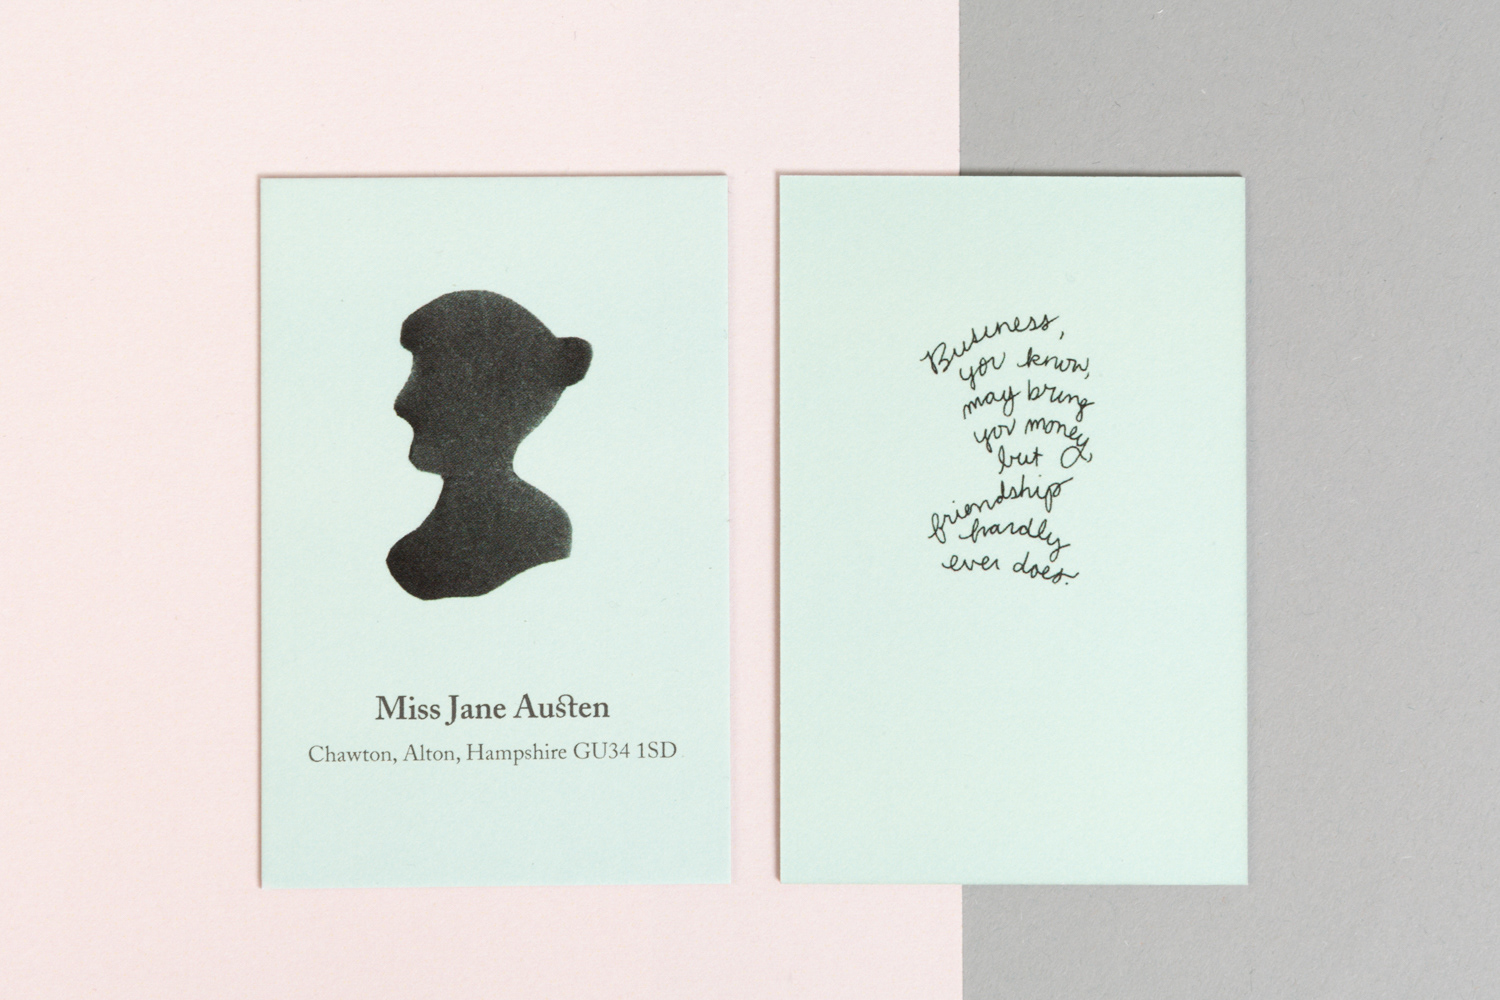 Miss Jane Austen
Chawton, Alton, Hampshire GU34 1SD
Business,
you know,
may bring
you money,
but
friendship
hardly
ever does.